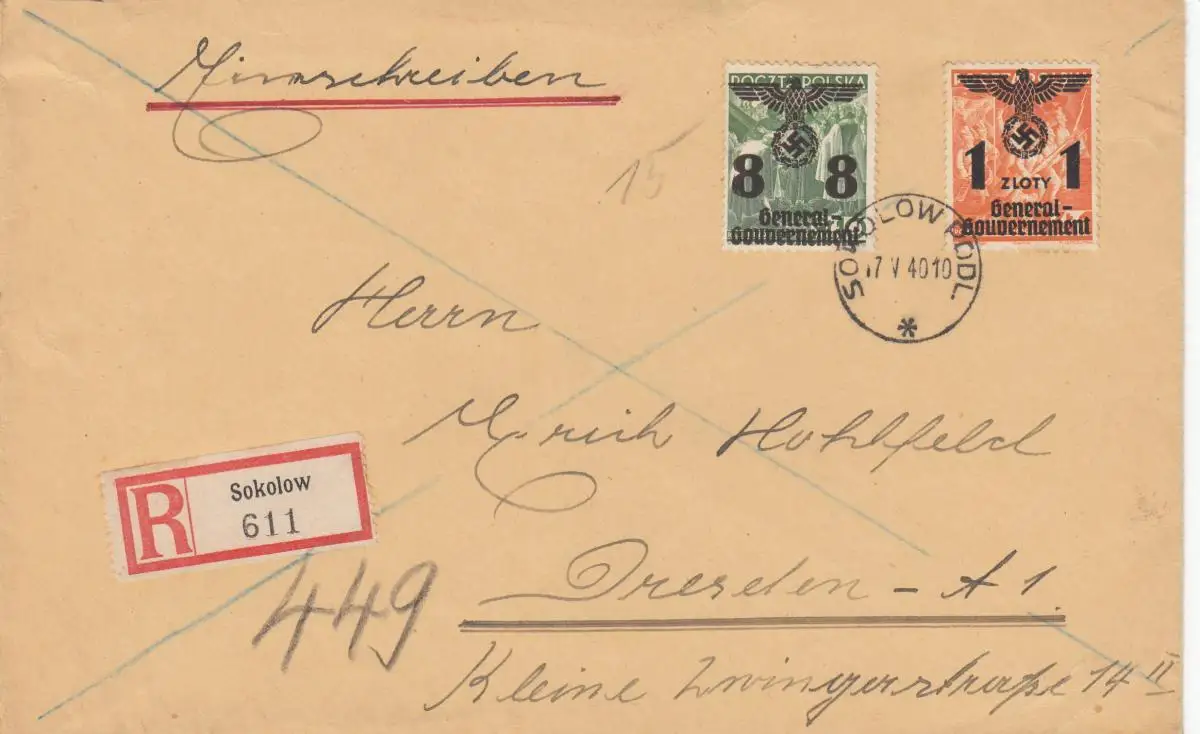 Einschreiben
POCZTA POLSKA
8 8
General-
Gouvernement
1 ZLOTY 1
General-
Gouvernement
SOKOLOW PODL.
17 V 40 10
*
15
Herrn
Erich Hohlfeld
R Sokolow
611
449
Dresden - A 1.
Kleine Zwingerstraße 14 II